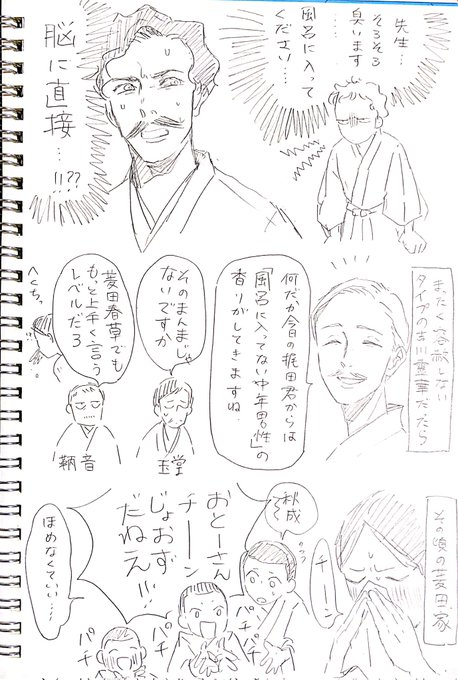 先生…
そろそろ
臭います
風呂に入って
ください…
脳に直接…!!??
まったく容赦しない
タイプの吉川霊華だったら
何だか今日の梶田君からは
「風呂に入ってない中年男性」の
香りがしてきますね
そのまんまじゃ
ないですか
玉堂
菱田春草でも
もっと上手く言う
レベルだろ
鞆音
へくちっ
その頃の菱田家
チーン
秋成
おとーさん
チーン
じょおず
だねえ!!!
ほめなくていい…
パチ
パチ
パチ
パチ